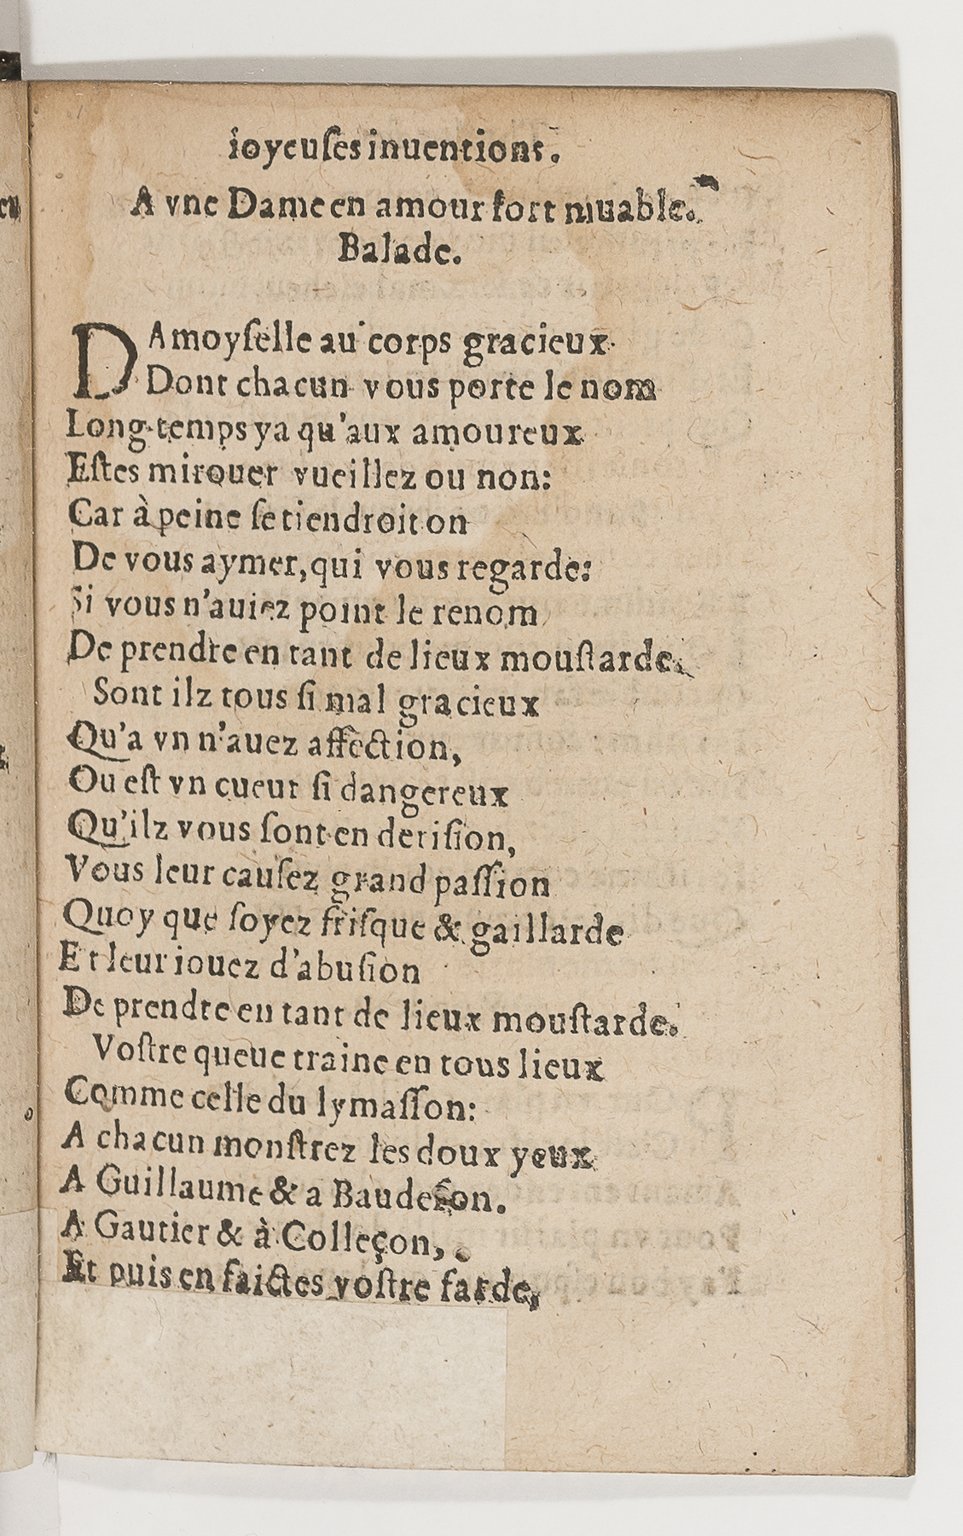 ioyeuses inuentions.
A vne Dame en amour fort muable.
Balade.
DAmoyselle au corps gracieux
Dont chacun vous porte le nom
Long temps ya qu'aux amoureux
Estes mirouer vueillez ou non:
Car à peine se tiendroit on
De vous aymer, qui vous regarde:
Si vous n'auiez point le renom
De prendre en tant de lieux moustarde.
Sont ilz tous si mal gracieux
Qu'a vn n'auez affection,
Ou est vn cueur si dangereux
Qu'ilz vous sont en derision,
Vous leur causez grand passion
Quoy que soyez frisque & gaillarde
Et leur iouez d'abusion
De prendre en tant de lieux moustarde.
Vostre queue traine en tous lieux
Comme celle du lymasson:
A chacun monstrez les doux yeux
A Guillaume & a Baudeson.
A Gautier & à Colleçon,
Et puis en faictes vostre farde,